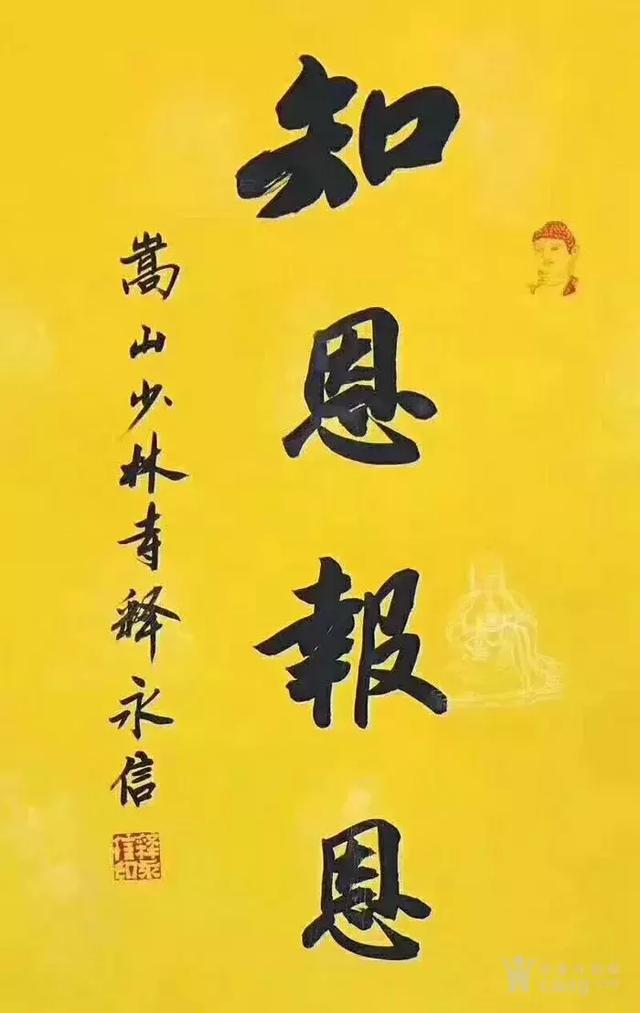 知恩報恩
嵩山少林寺释永信